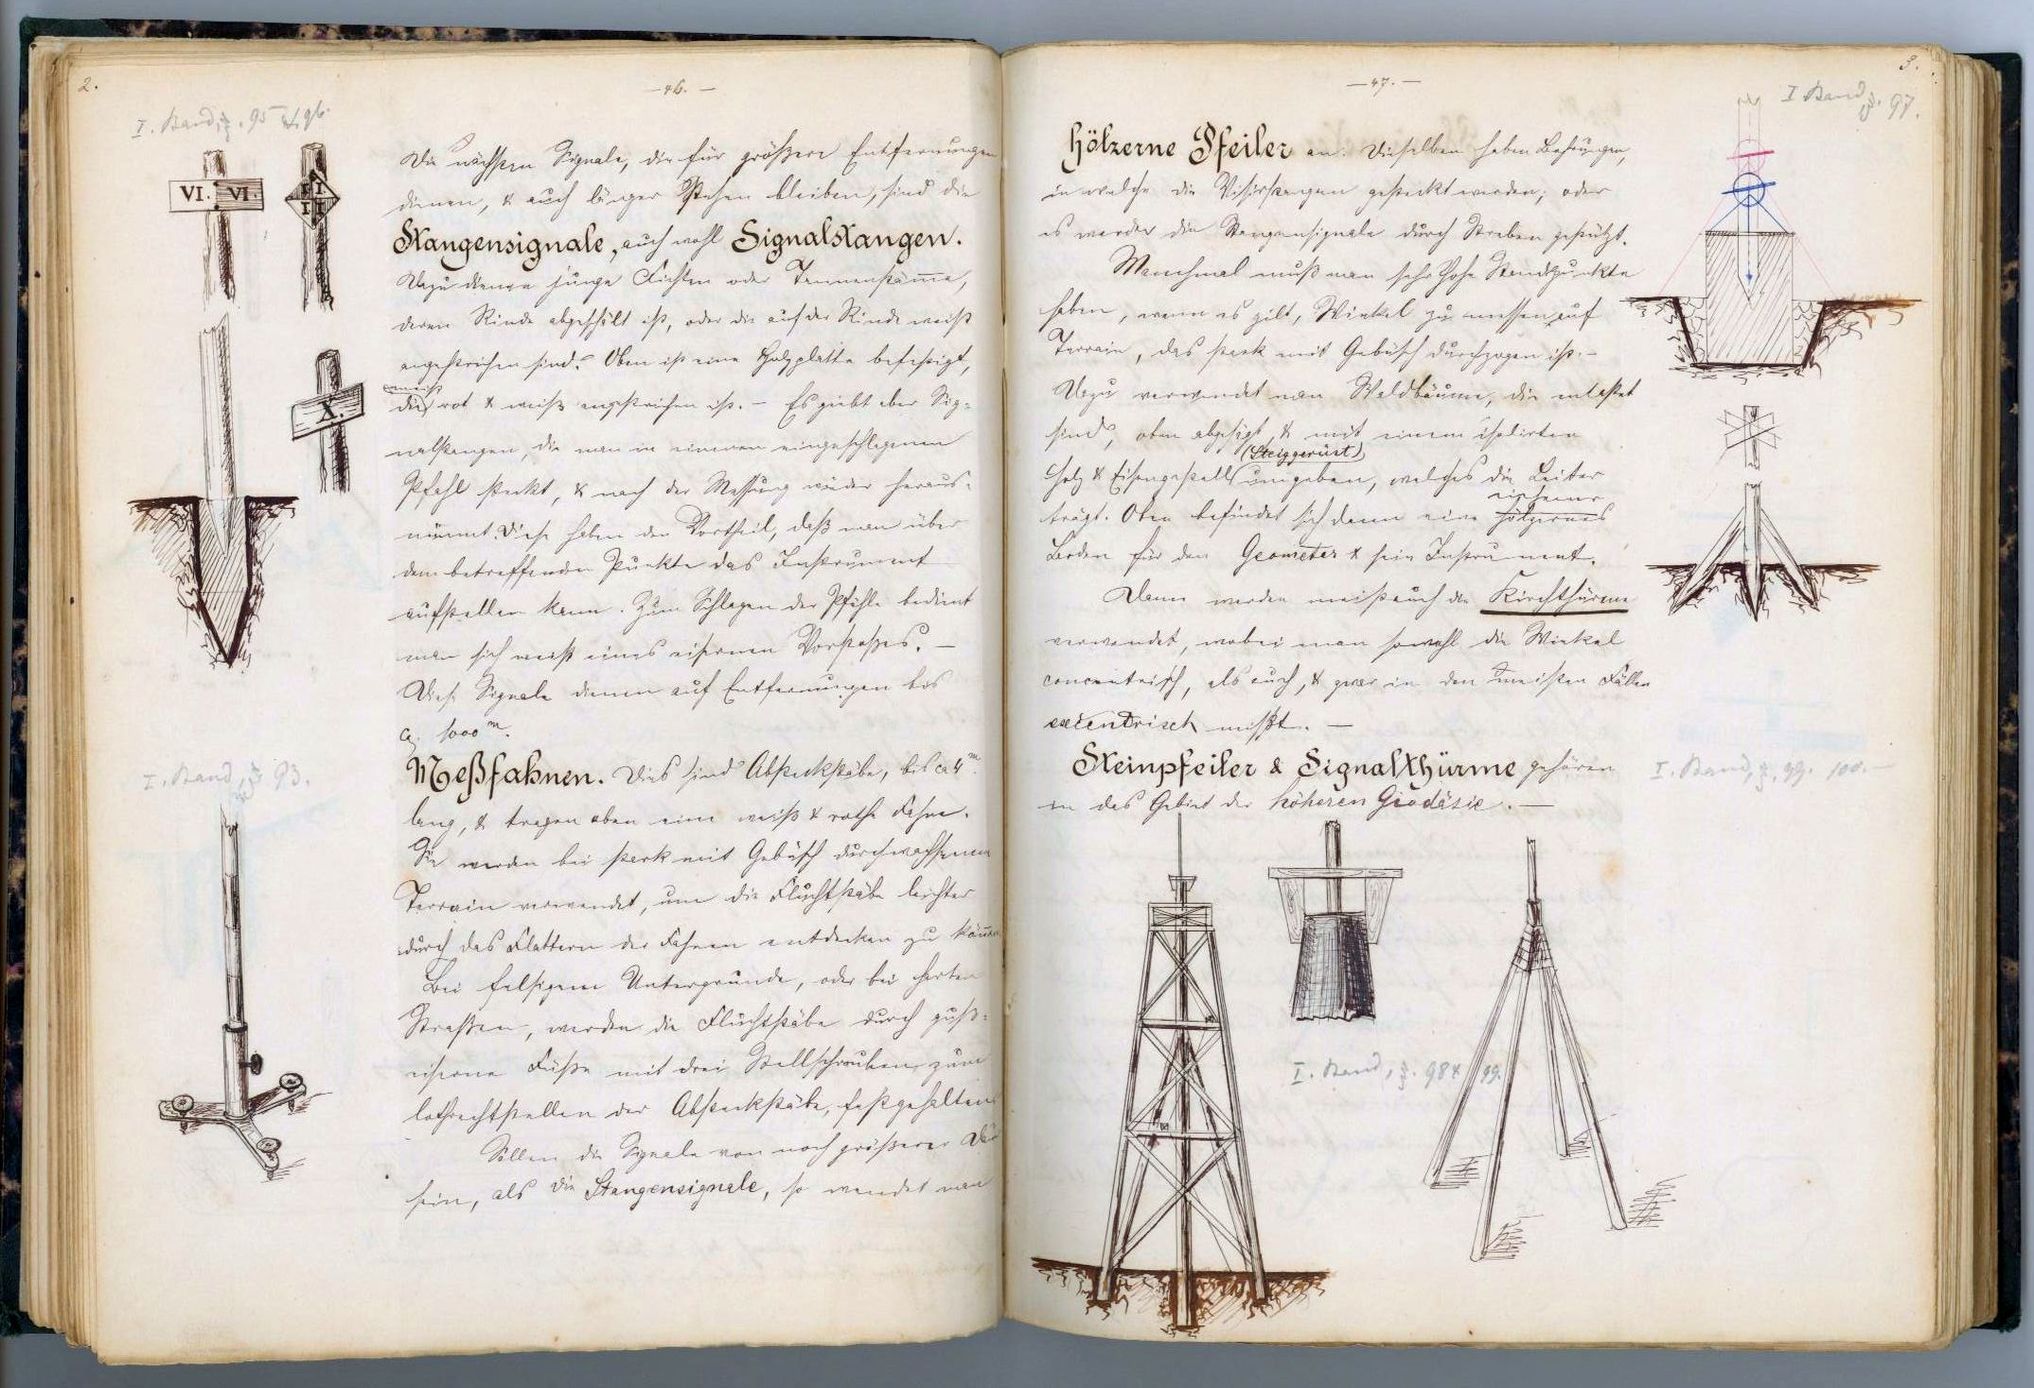 2.
— 46. —
I. Band, S. 95 u. 96.
VI. VI.
X.
Die nächsten Signale, die für größere Entfernungen
dienen, & auch länger stehen bleiben, sind die
Stangensignale, auch wohl Signalstangen.
Dazu dienen junge Fichten oder Tannenstäm̄e,
deren Rinde abgeschält ist, oder die auf der Rinde weiß
angestrichen sind. Oben ist eine Holzplatte befestigt,
die meist rot & weiß angestrichen ist. — Es giebt aber Sig=
nalstangen, die man in einen eingeschlagenen
Pfahl steckt, & nach der Messung wieder heraus=
nim̄t. Diese haben den Vortheil, daß man über
dem betreffenden Punkte das Instrument
aufstellen kann. Zum Schlagen der Pfähle bedient
man sich meist eines eisernen Vorstoßes. —
Diese Signale dienen auf Entfernungen bis
ca. 1000 m.
I. Band, S. 93.
Meßfahnen. Dies sind Absteckstäbe, bis ca 4 m.
lang, & tragen oben eine weiß & rothe Fahne.
Sie werden bei stark mit Gebüsch durchwachsenem
Terrain verwendet, um die Fluchtstäbe leichter
durch das Flattern der Fahnen entdecken zu kön̄en.
Bei felsigem Untergrunde, oder bei harten
Straßen, werden die Fluchtstäbe durch guß=
eiserne Füße mit drei Stellschrauben, zum
lothrechtstellen der Absteckstäbe, festgehalten.
Sollen die Signale von noch größerer
sein, als die Stangensignale, so wendet man
3.
— 47. —
I Band, S. 97.
hölzerne Pfeiler an. Dieselben haben
in welche die Visirstangen gesteckt werden; oder
es werden die Stangensignale durch Streben gestützt.
Manchmal muß man sehr hohe Standpunkte
haben, wenn es gilt, Winkel zu messen auf
Terrain, das stark mit Gebüsch durchzogen ist. —
Dazu verwendet man Waldbäume, die entastet
sind, oben abgesägt, & mit einem isolirten
Holz & Eisengestell (Steiggerüst) umgeben, welches die Leiter
trägt. Oben befindet sich dann eine hölzernes
Boden für den Geometer & sein Instrument.
Dann werden meist auch die Kirchthürme
verwendet, wobei man sowohl die Winkel
concentrisch, als auch, & zwar in den meisten Fällen
excentrisch mißt. —
Steinpfeiler & Signalthürme gehören
in das Gebiet der höheren Geodäsie. —
I. Band, S. 99. 100. —
I. Band, S. 98 & 99.